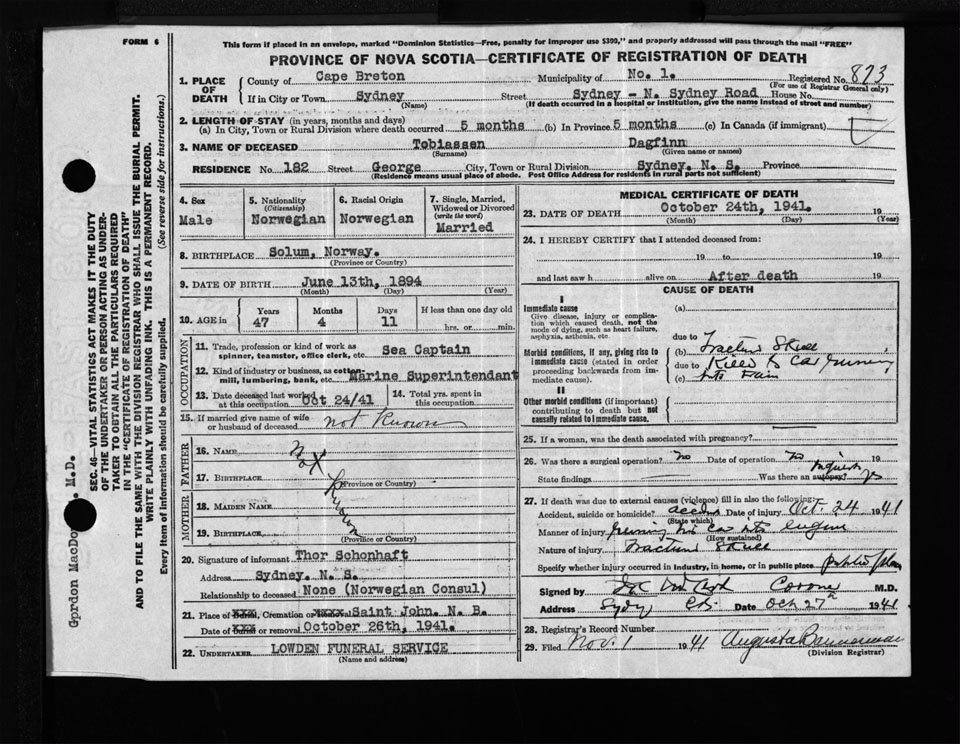 FORM 6
This form if placed in an envelope, marked "Dominion Statistics—Free, penalty for improper use $300," and properly addressed will pass through the mail "FREE"
PROVINCE OF NOVA SCOTIA—CERTIFICATE OF REGISTRATION OF DEATH
1. PLACE OF DEATH { County of Cape Breton Municipality of No. 1. Registered No. 873
(For use of Registrar General only)
If in City or Town Sydney (Name) Street Sydney - N. Sydney Road House No.
(If death occurred in a hospital or institution, give the name instead of street and number)
2. LENGTH OF STAY (in years, months and days)
(a) In City, Town or Rural Division where death occurred 5 months (b) In Province 5 months (c) In Canada (if immigrant)
3. NAME OF DECEASED Tobiassen Dagfinn
(Surname) (Given name or names)
RESIDENCE No. 182 Street George City, Town or Rural Division Sydney. N. S. Province
(Residence means usual place of abode. Post Office Address for residents in rural parts not sufficient)
4. Sex Male
5. Nationality (Citizenship) Norwegian
6. Racial Origin Norwegian
7. Single, Married, Widowed or Divorced (write the word) Married
8. BIRTHPLACE Solum, Norway.
(Province or Country)
9. DATE OF BIRTH June 13th, 1894
(Month) (Day) (Year)
10. AGE in Years 47 Months 4 Days 11 If less than one day old hrs. or min.
OCCUPATION
11. Trade, profession or kind of work as spinner, teamster, office clerk, etc Sea Captain
12. Kind of industry or business, as cotton-mill, lumbering, bank, etc. Marine Superintendant
13. Date deceased last worked at this occupation Oct 24/41
14. Total yrs. spent in this occupation
15. If married give name of wife or husband of deceased not Known
FATHER
16. NAME Not
17. BIRTHPLACE Known
(Province or Country)
MOTHER
18. MAIDEN NAME
19. BIRTHPLACE
(Province or Country)
20. Signature of informant Thor Schonhaft
Address Sydney. N. S.
Relationship to deceased None (Norwegian Consul)
21. Place of Burial, Cremation or Saint John. N. B.
Date of or removal October 26th, 1941.
22. UNDERTAKER LOWDEN FUNERAL SERVICE
(Name and address)
MEDICAL CERTIFICATE OF DEATH
23. DATE OF DEATH October 24th, 1941. 19
(Month) (Day) (Year)
24. I HEREBY CERTIFY that I attended deceased from:
19 to 19
and last saw h alive on After death 19
CAUSE OF DEATH
I
Immediate cause (a)
Give disease, injury or complication which caused death, not the mode of dying, such as heart failure, asphyxia, asthenia, etc.
due to
Morbid conditions, if any, giving rise to immediate cause (stated in order proceeding backwards from immediate cause).
(b) Fracture Skull
due to Killed by Car running
(c) into train
II
Other morbid conditions (if important) contributing to death but not causally related to immediate cause.
25. If a woman, was the death associated with pregnancy?
26. Was there a surgical operation? no Date of operation no 19
State findings Was there an autopsy? Inquest yes
27. If death was due to external causes (violence) fill in also the following:
Accident, suicide or homicide? accident Date of injury Oct. 24 1941
(State which)
Manner of injury running his car into engine
(How sustained)
Nature of injury Fracture Skull
Specify whether injury occurred in industry, in home, or in public place public place
Signed by Coroner M.D.
Address Sydney C.B. Date Oct 27 1941
28. Registrar's Record Number
29. Filed Nov. 1 1941 Augusta Bannerman
(Division Registrar)
SEC. 46—VITAL STATISTICS ACT MAKES IT THE DUTY
OF THE UNDERTAKER OR PERSON ACTING AS UNDER-
TAKER TO OBTAIN ALL THE PARTICULARS REQUIRED
IN THE "CERTIFICATE OF REGISTRATION OF DEATH"
AND TO FILE THE SAME WITH THE DIVISION REGISTRAR WHO SHALL ISSUE THE BURIAL PERMIT.
WRITE PLAINLY WITH UNFADING INK. THIS IS A PERMANENT RECORD.
Every item of information should be carefully supplied. (See reverse side for instructions.)
Gordon MacDo . M.D.